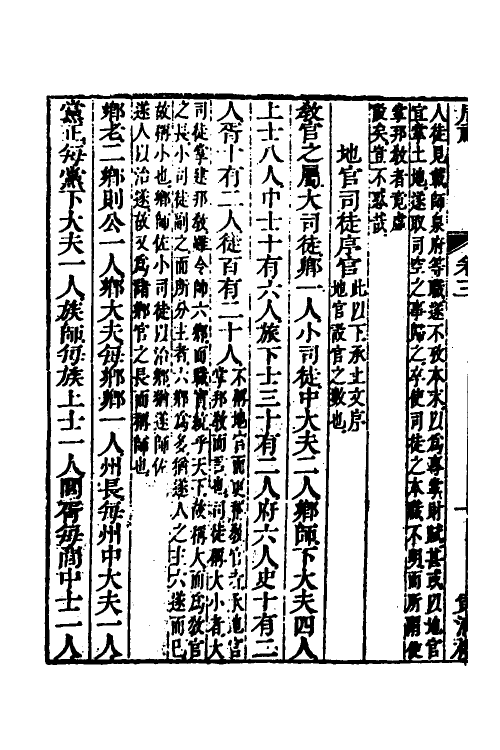 卷三
人徒見載師泉府等職遂不攷本末以爲專掌財賦甚或以地官
宜掌土地遂取司空之事歸之卒使司徒之本職不明而所謂使
掌邦教者竟虛
設矣豈不謬哉
地官司徒序官此以下承上文序
地官設官之數也
教官之屬大司徒卿一人小司徒中大夫二人鄉師下大夫四人
上士八人中士十有六人旅下士三十有二人府六人史十有二
人胥十有二人徒百有二十人不稱地官而更稱教官者承地官
掌邦教而言也司徒稱大小者大
司徒掌建邦教雖令師六鄉而職實統乎天下故稱大而爲教官
之長小司徒副之而所分主者六鄉爲多猶遂人之主六遂而已
故稱小也鄉師佐小司徒以治鄉猶遂師佐
遂人以治遂故又爲諸鄉官之長而稱師也
鄉老二鄉則公一人鄉大夫每鄉卿一人州長每州中大夫一人
黨正每黨下大夫一人族師每族上士一人閭胥每閭中士一人